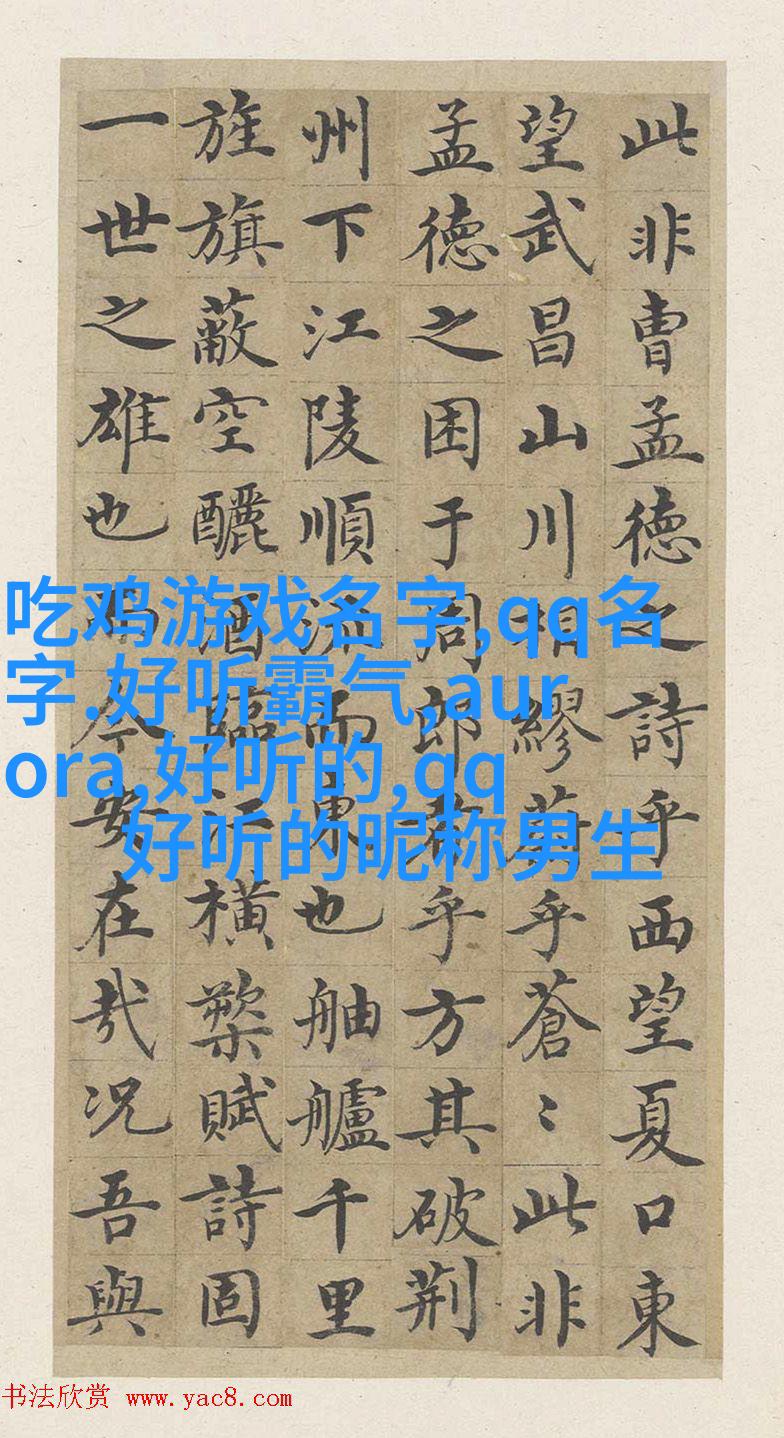 此非曹孟德之詩乎西望夏口東
望武昌山川相繆蔚乎蒼〻此非
孟德之困于周郎者乎方其破荊
州下江陵順流而東也舳艫千里
旌旗蔽空釃酒臨江橫槊賦詩固
一世之雄也而今安在哉況吾與
吃鸡游戏名字,qq名
字.好听霸气,aur
ora,好听的,qq
好听的昵称男生
书法欣赏 www.yac8.com